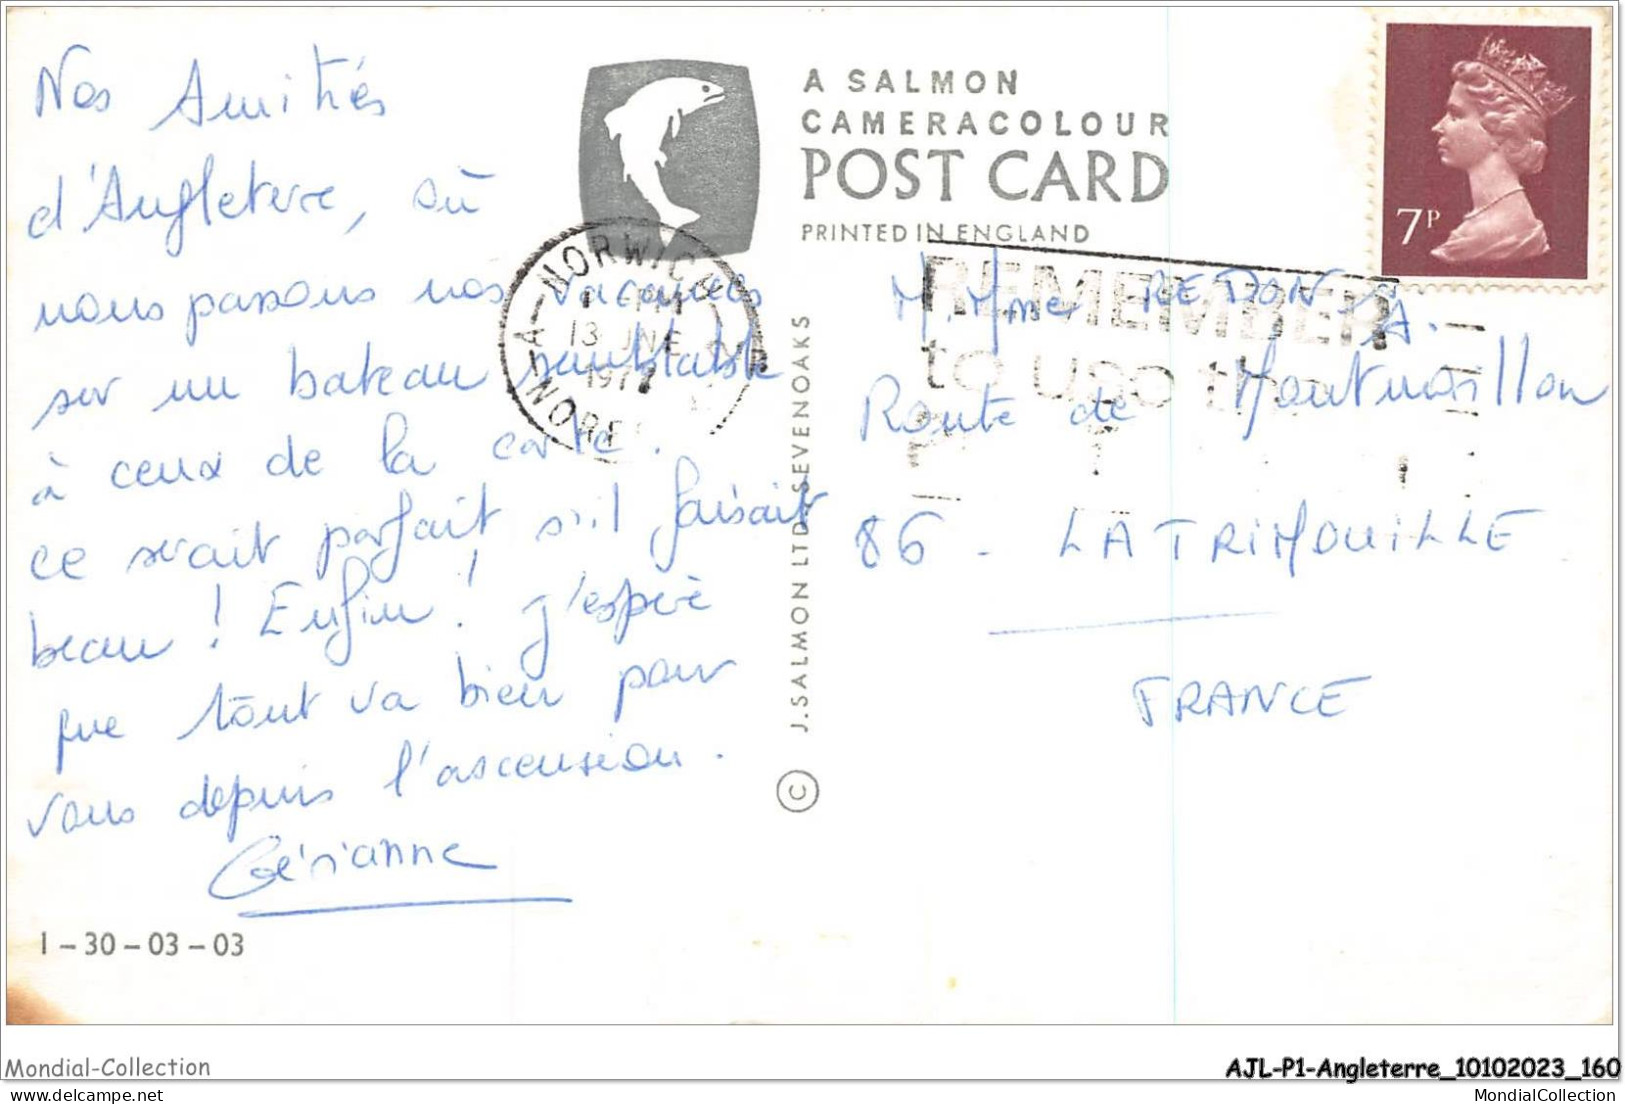 Nos Amitiés
d'Angleterre, où
nous passons nos vacances
sur un bateau semblable
à ceux de la carte.
ce serait parfait s'il faisait
beau ! Enfin ! j'espère
que tout va bien pour
vous depuis l'ascension.
Gérianne
1-30-03-03
A SALMON
CAMERACOLOUR
POST CARD
PRINTED IN ENGLAND
NORWICH
PM
13 JNE
1977
J. SALMON LTD. SEVENOAKS
©
7P
REMEMBER
to use the
M. Mme REDON A.
Route de Montmorillon
86 - LA TRIMOUILLE
FRANCE
Mondial-Collection
AJL-P1-Angleterre_10102023_160
MondialCollection